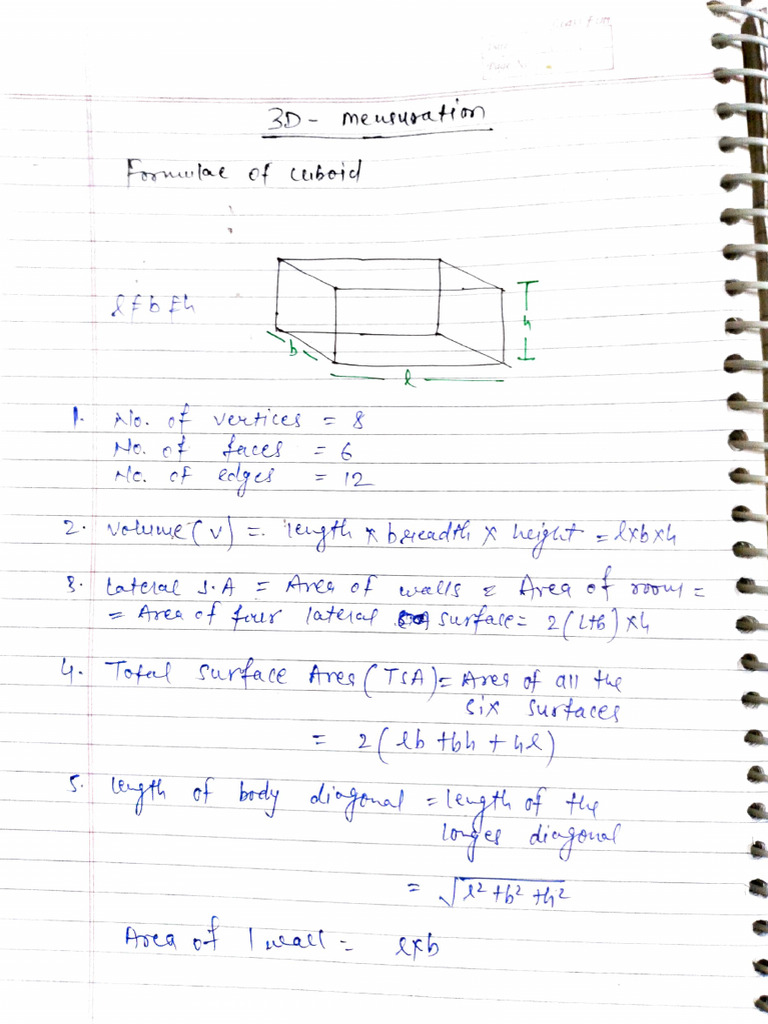 3D - mensuration
Formulae of cuboid
l ≠ b ≠ h
h
b
l
1. No. of vertices = 8
No. of faces = 6
No. of edges = 12
2. Volume (v) = length × breadth × height = l×b×h
3. Lateral S.A = Area of walls = Area of room =
= Area of four lateral surface = 2(l+b)×h
4. Total surface Area (TSA) = Area of all the
six surfaces
= 2(lb + bh + hl)
5. length of body diagonal = length of the
longes diagonal
= √l² + b² + h²
Area of 1 wall = l×b